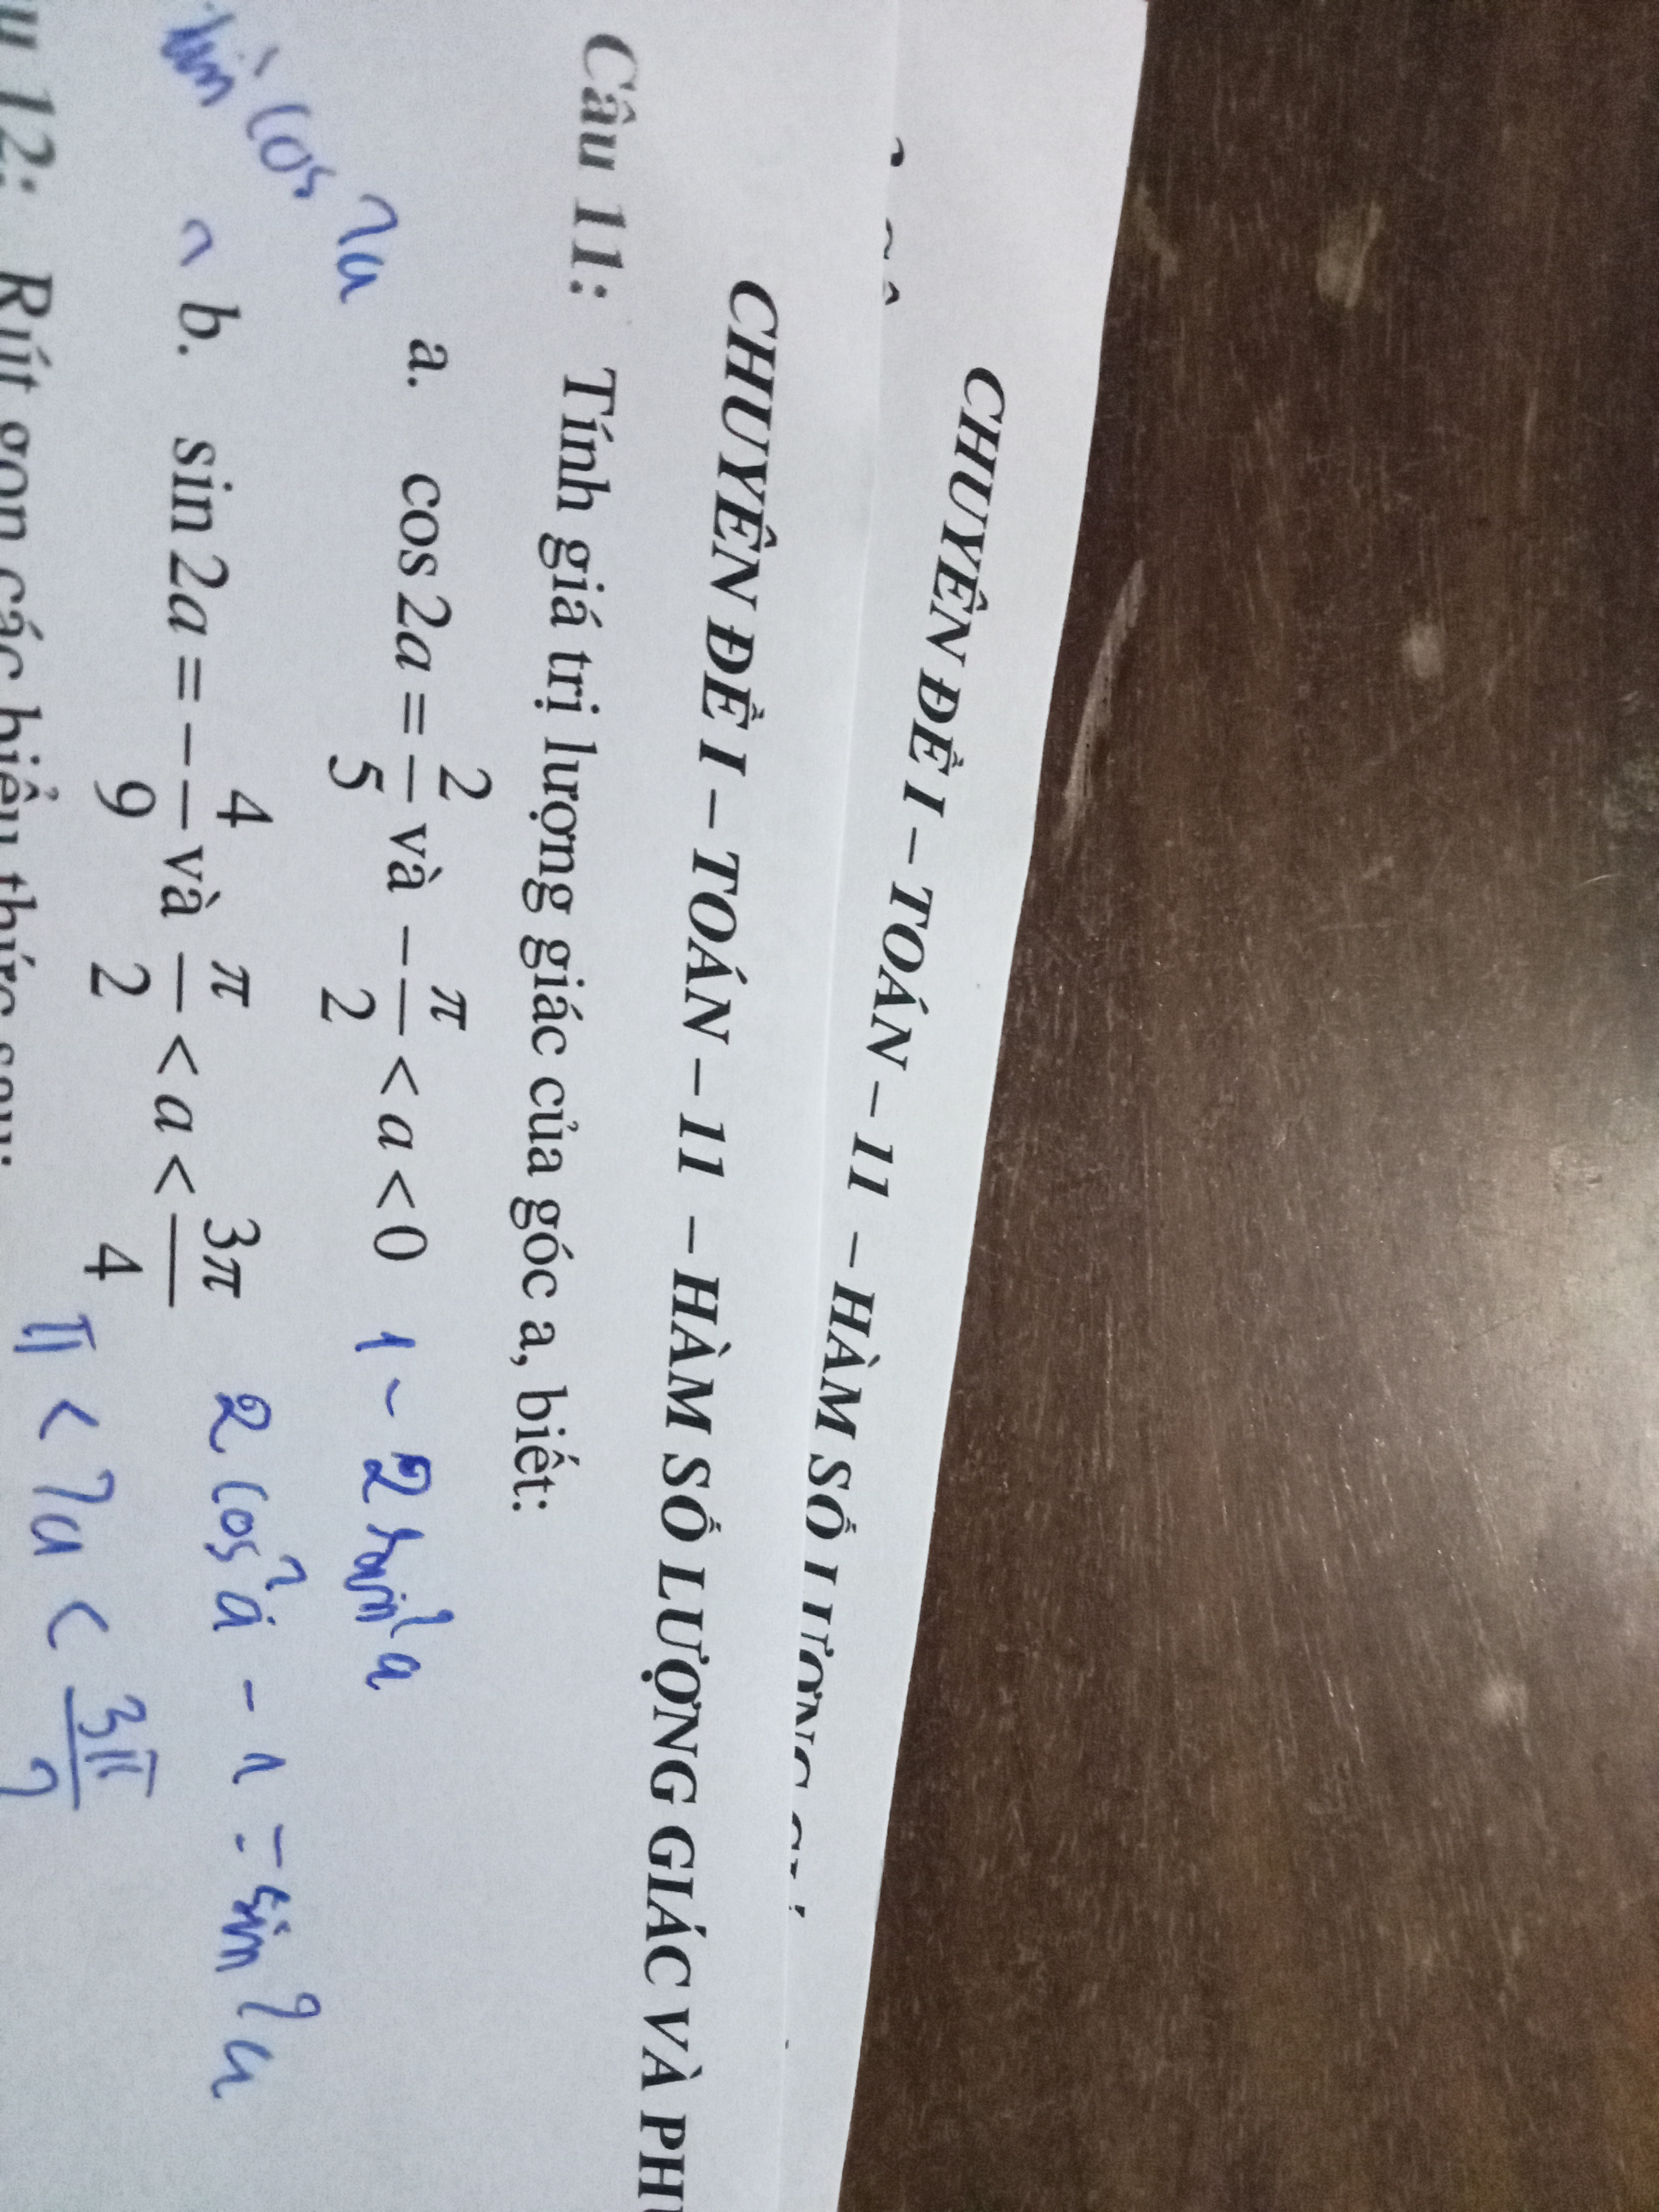 CHUYÊN ĐỀ I – TOÁN – 11 – HÀM SỐ LƯỢNG
CHUYÊN ĐỀ I – TOÁN – 11 – HÀM SỐ LƯỢNG GIÁC VÀ
Câu 11: Tính giá trị lượng giác của góc a, biết:
a. cos 2a = 2/5 và − π/2 < a < 0 1 - 2 sin²a
cos 2a
b. sin 2a = − 4/9 và π/2 < a < 3π/4 2 cos²a - 1 = sin 2a
π < 2a < 3π/2
12: Rút gọn các biểu thức sau: